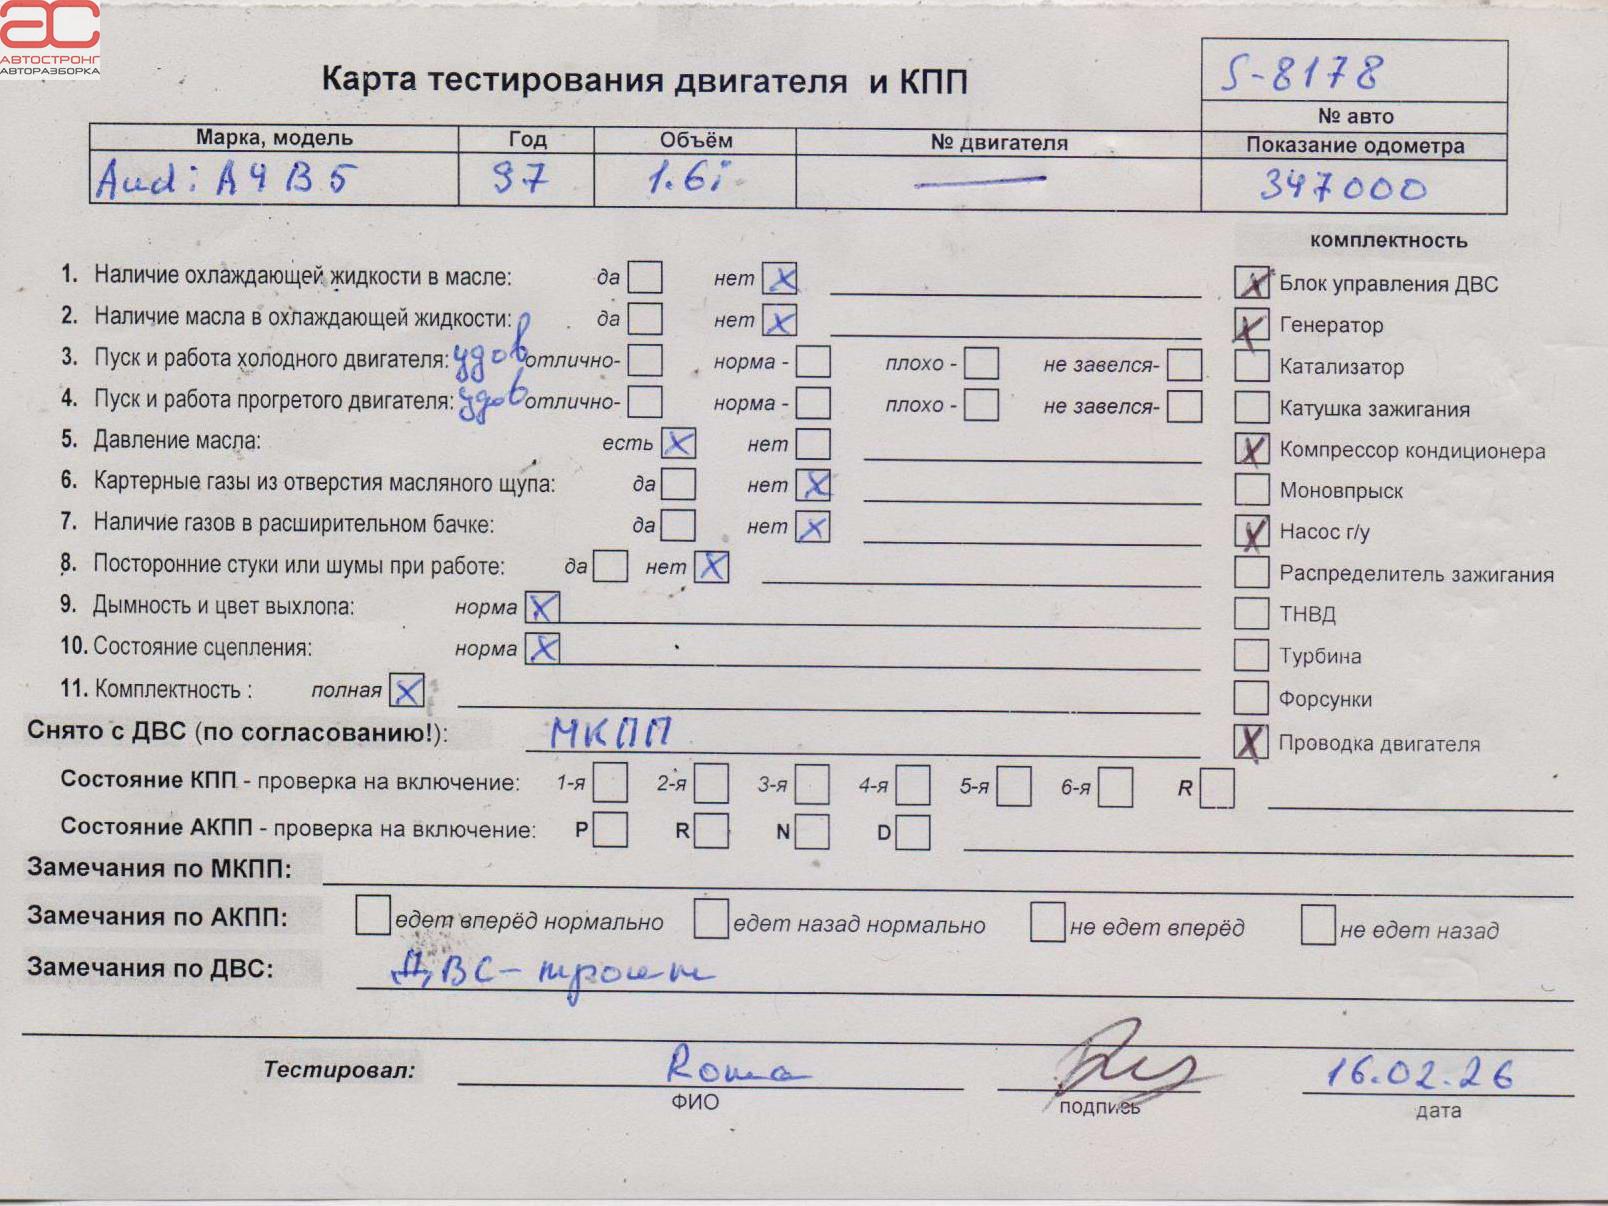 АС
АВТОСТРОНГ
АВТОРАЗБОРКА
Карта тестирования двигателя и КПП
S-8178
№ авто
Марка, модель Год Объём № двигателя Показание одометра
Audi A4 B5 97 1.6i — 347000
комплектность
1. Наличие охлаждающей жидкости в масле: да нет X
Блок управления ДВС X
2. Наличие масла в охлаждающей жидкости: да нет X
Генератор X
3. Пуск и работа холодного двигателя: удов отлично- норма - плохо - не завелся-
Катализатор
4. Пуск и работа прогретого двигателя: удов отлично- норма - плохо - не завелся-
Катушка зажигания
5. Давление масла: есть X нет
Компрессор кондиционера X
6. Картерные газы из отверстия масляного щупа: да нет X
Моновпрыск
7. Наличие газов в расширительном бачке: да нет X
Насос г/у X
8. Посторонние стуки или шумы при работе: да нет X
Распределитель зажигания
9. Дымность и цвет выхлопа: норма X
ТНВД
10. Состояние сцепления: норма X
Турбина
11. Комплектность : полная X
Форсунки
Снято с ДВС (по согласованию!): МКПП
Проводка двигателя X
Состояние КПП - проверка на включение: 1-я 2-я 3-я 4-я 5-я 6-я R
Состояние АКПП - проверка на включение: P R N D
Замечания по МКПП:
Замечания по АКПП: едет вперёд нормально едет назад нормально не едет вперёд не едет назад
Замечания по ДВС: ДВС - троит
Тестировал: Roma 16.02.26
ФИО подпись дата